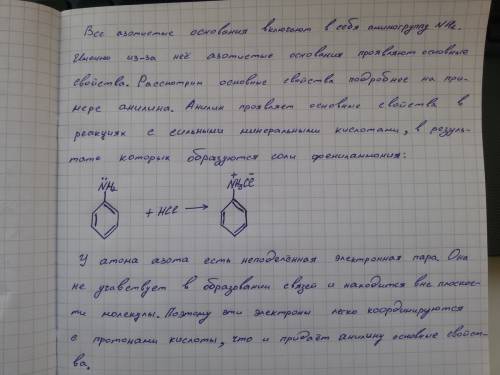 Все азотистые основания включают в себя аминогруппу NH₂.
Именно из-за неё азотистые основания проявляют основные
свойства. Рассмотрим основные свойства подробнее на при-
мере анилина. Анилин проявляет основные свойства в
реакциях с сильными минеральными кислотами, в резуль-
тате которых образуются соли фениламмония:
N̈H₂ + HCl → N⁺H₃Cl⁻
У атома азота есть неподелённая электронная пара. Она
не учавствует в образовании связей и находится вне плоскос-
ти молекулы. Поэтому эти электроны легко координируются
с протонами кислоты, что и придаёт анилину основные свойст-
ва.